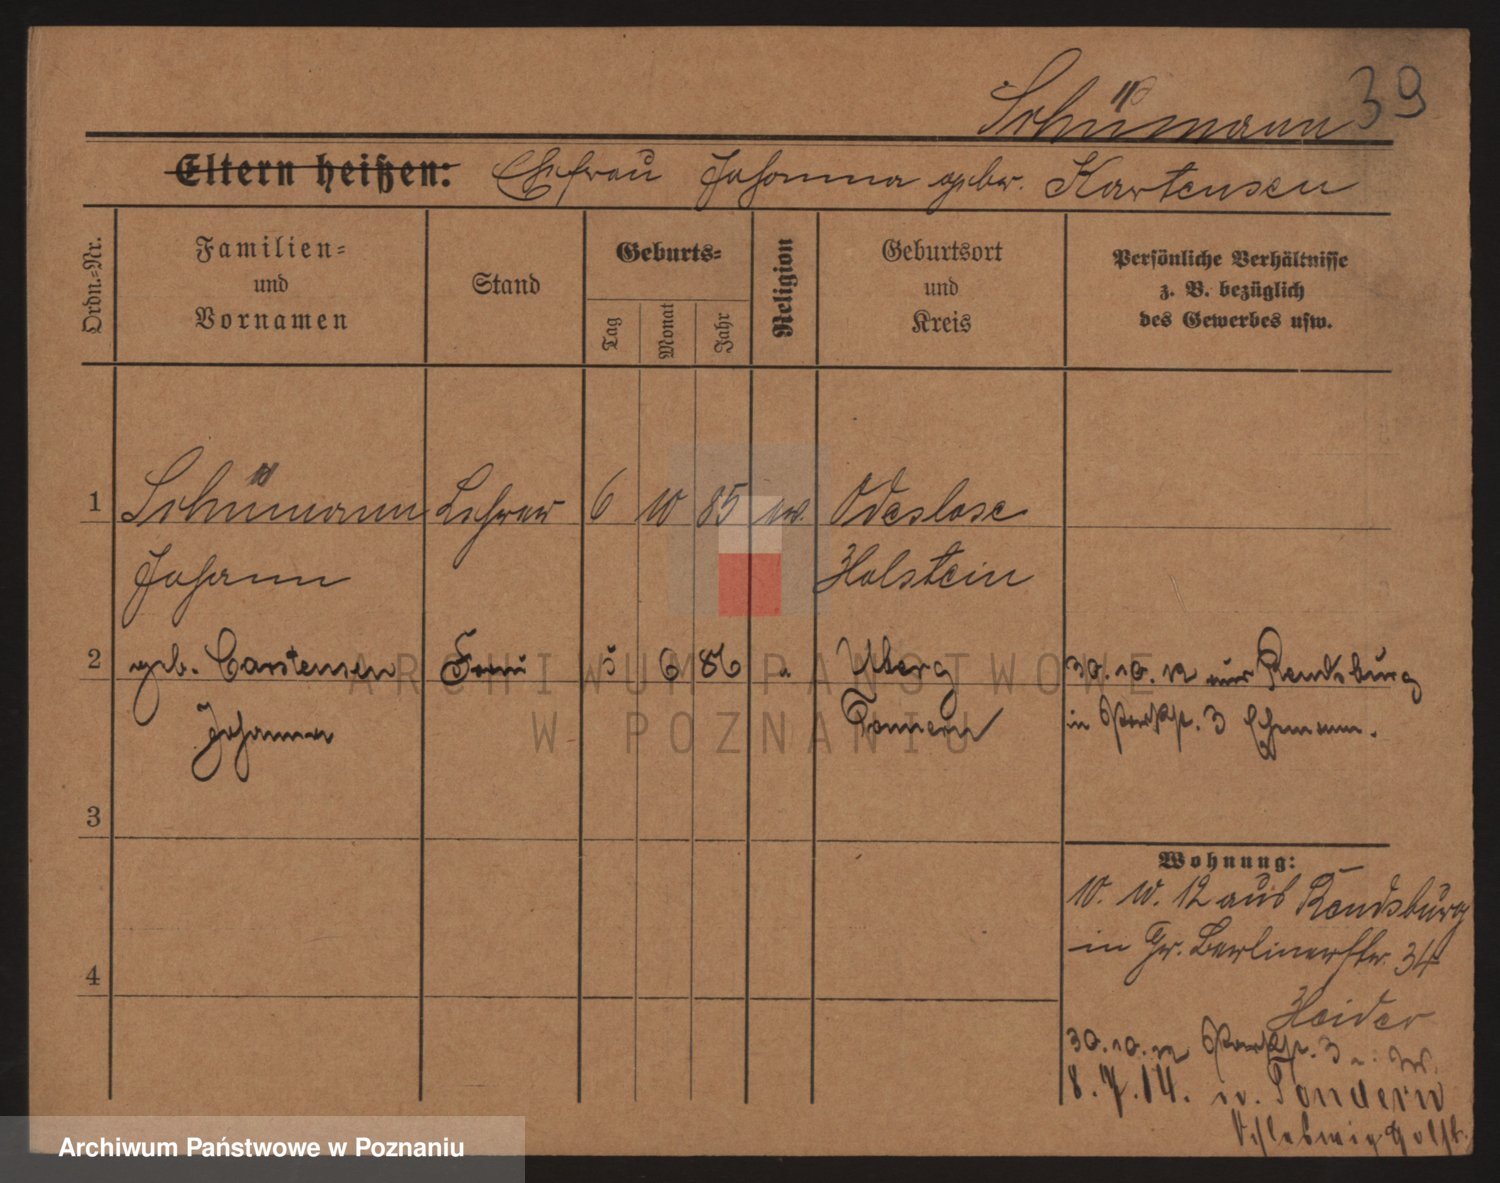 Schümann 39
Eltern heißen: Ehefrau Johanna gebor. Kartensen
Ordn.-Nr.
Familien-
und
Vornamen
Stand
Geburts-
Tag
Monat
Jahr
Religion
Geburtsort
und
Kreis
Persönliche Verhältnisse
z. B. bezüglich
des Gewerbes usw.
1 Schümann Lehrer 6 10 85 ev. Odeslose
Johann Holstein
2 geb. Carstensen Frau 5 6 86 " Uberg 30.10.12 aus Rendsburg
Johanna Tondern in Parkstr. 3 Ehemann.
3
4
Wohnung:
10. 10. 12 aus Rendsburg
in Gr. Berlinerstr. 34
Heider
30.10.12 Parkstr. 3
8.7.14. n. Tondern
Schleswig Holst.
ARCHIWUM PAŃSTWOWE
W POZNANIU
Archiwum Państwowe w Poznaniu